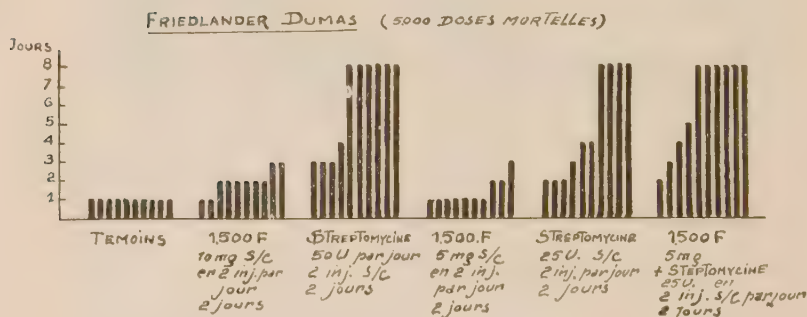 FRIEDLANDER DUMAS (5.000 DOSES MORTELLES)
JOURS
8
7
6
5
4
3
2
1
TEMOINS
1,500 F
10 mg S/C
en 2 inj. par
jour
2 jours
STREPTOMYCINE
50 U par jour
2 inj. S/C
2 jours
1,500. F
5 mg S/C
en 2 inj.
par jour
2 jours
STREPTOMYCINE
25 U. S/C
2 inj. par jour
2 jours
1,500 F
5 mg
+ STEPTOMYCINE
25 U. en
2 inj. S/C par jour
2 jours